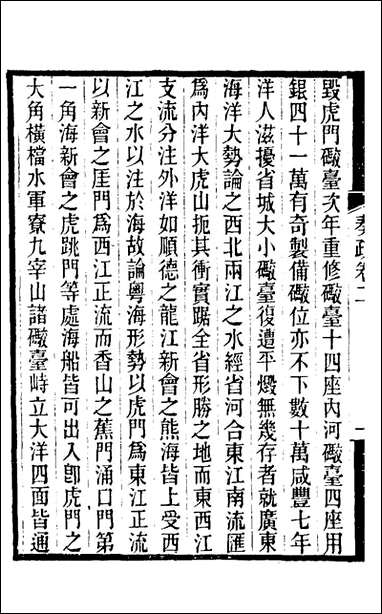 毀虎門礮臺次年重修礮臺十四座內河礮臺四座用
銀四十一萬有奇製備礮位亦不下數十萬咸豐七年
洋人滋擾省城大小礮臺復遭平燬無幾存者就廣東
海洋大勢論之西北兩江之水經省河合東江南流匯
爲內洋大虎山扼其衝實踞全省形勝之地而東西江
支流分注外洋如順德之龍江新會之熊海皆上受西
江之水以注於海故論粵海形勢以虎門爲東江正流
以新會之厓門爲西江正流而香山之蕉門涌口門第
一角海新會之虎跳門等處海船皆可出入卽虎門之
大角橫檔水軍寮九宰山諸礮臺峙立大洋四面皆通
奏疏卷二